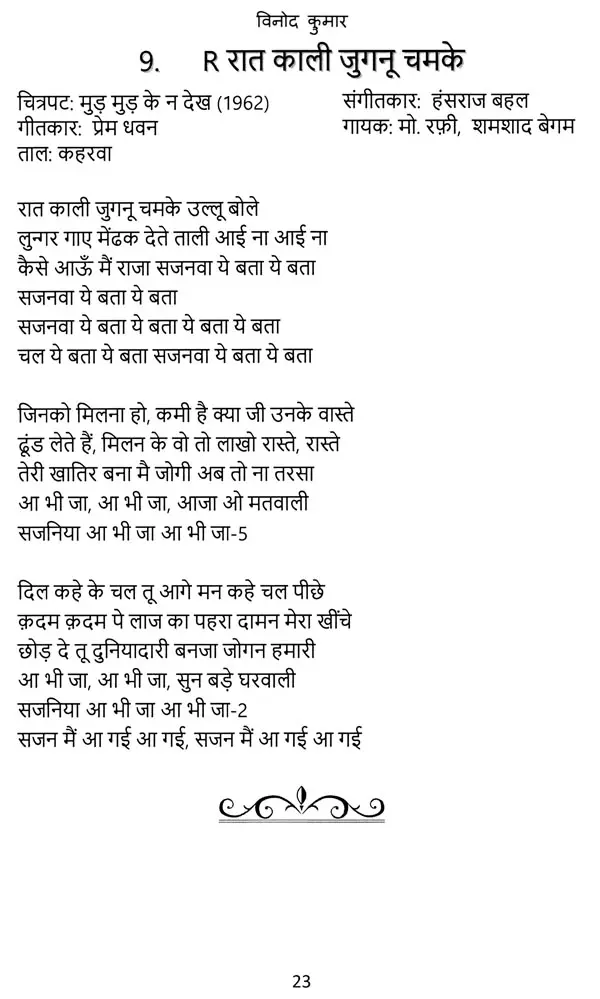 विनोद कुमार
9. R रात काली जुगनू चमके
चित्रपट: मुड़ मुड़ के न देख (1962) संगीतकार: हंसराज बहल
गीतकार: प्रेम धवन गायक: मो. रफ़ी, शमशाद बेगम
ताल: कहरवा
रात काली जुगनू चमके उल्लू बोले
लुन्गर गाए मेंढक देते ताली आई ना आई ना
कैसे आऊँ मैं राजा सजनवा ये बता ये बता
सजनवा ये बता ये बता
सजनवा ये बता ये बता ये बता ये बता
चल ये बता ये बता सजनवा ये बता ये बता
जिनको मिलना हो, कमी है क्या जी उनके वास्ते
ढूंड लेते हैं, मिलन के वो तो लाखो रास्ते, रास्ते
तेरी खातिर बना मै जोगी अब तो ना तरसा
आ भी जा, आ भी जा, आजा ओ मतवाली
सजनिया आ भी जा आ भी जा-5
दिल कहे के चल तू आगे मन कहे चल पीछे
क़दम क़दम पे लाज का पहरा दामन मेरा खींचे
छोड़ दे तू दुनियादारी बनजा जोगन हमारी
आ भी जा, आ भी जा, सुन बड़े घरवाली
सजनिया आ भी जा आ भी जा-2
सजन मैं आ गई आ गई, सजन मैं आ गई आ गई
23